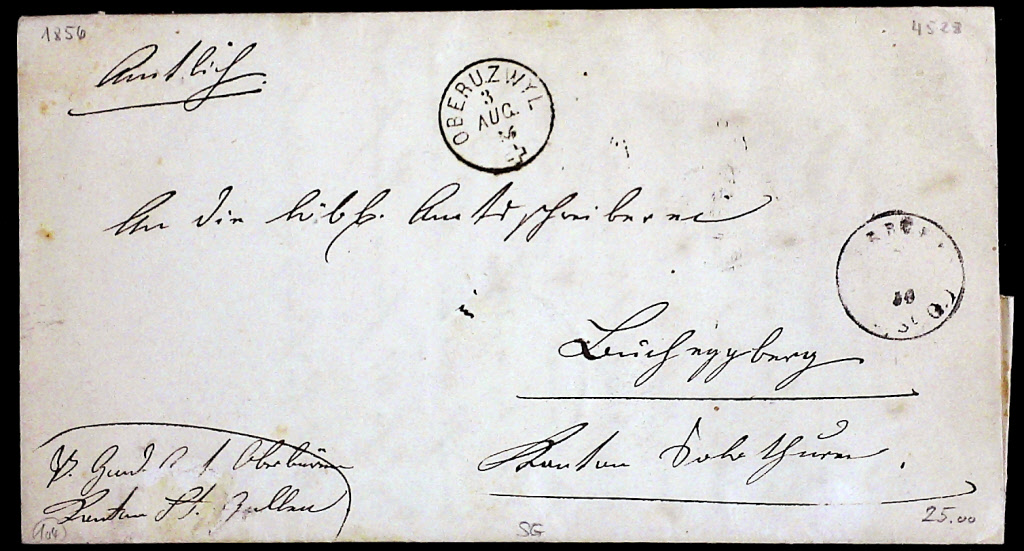 1856
4528
Amtlich.
OBERUZWYL
3
AUG.
56
An die löbl. Amtsschreiberei
Bucheggberg
Kanton Solothurn.
Oberbüren
Kanton St. Gallen
104
SG
25.00